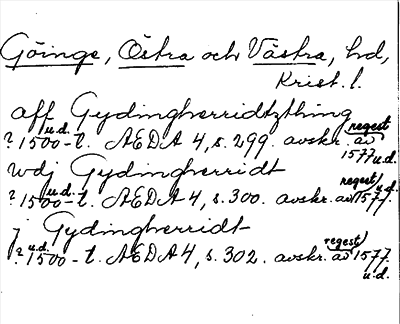 Göinge, Östra och Västra, hd,
Krist. l.
aff Gydingherridtzthing
? 1500-t. u.d. AEDA 4, s. 299. avskr. av regest 1577 u.d.
wdj Gydingherridt
? 1500-t. u.d. AEDA 4, s. 300. avskr. av regest 1577. u.d.
j Gydingherridt
? 1500-t. u.d. AEDA 4, s. 302. avskr. av regest 1577 u.d.